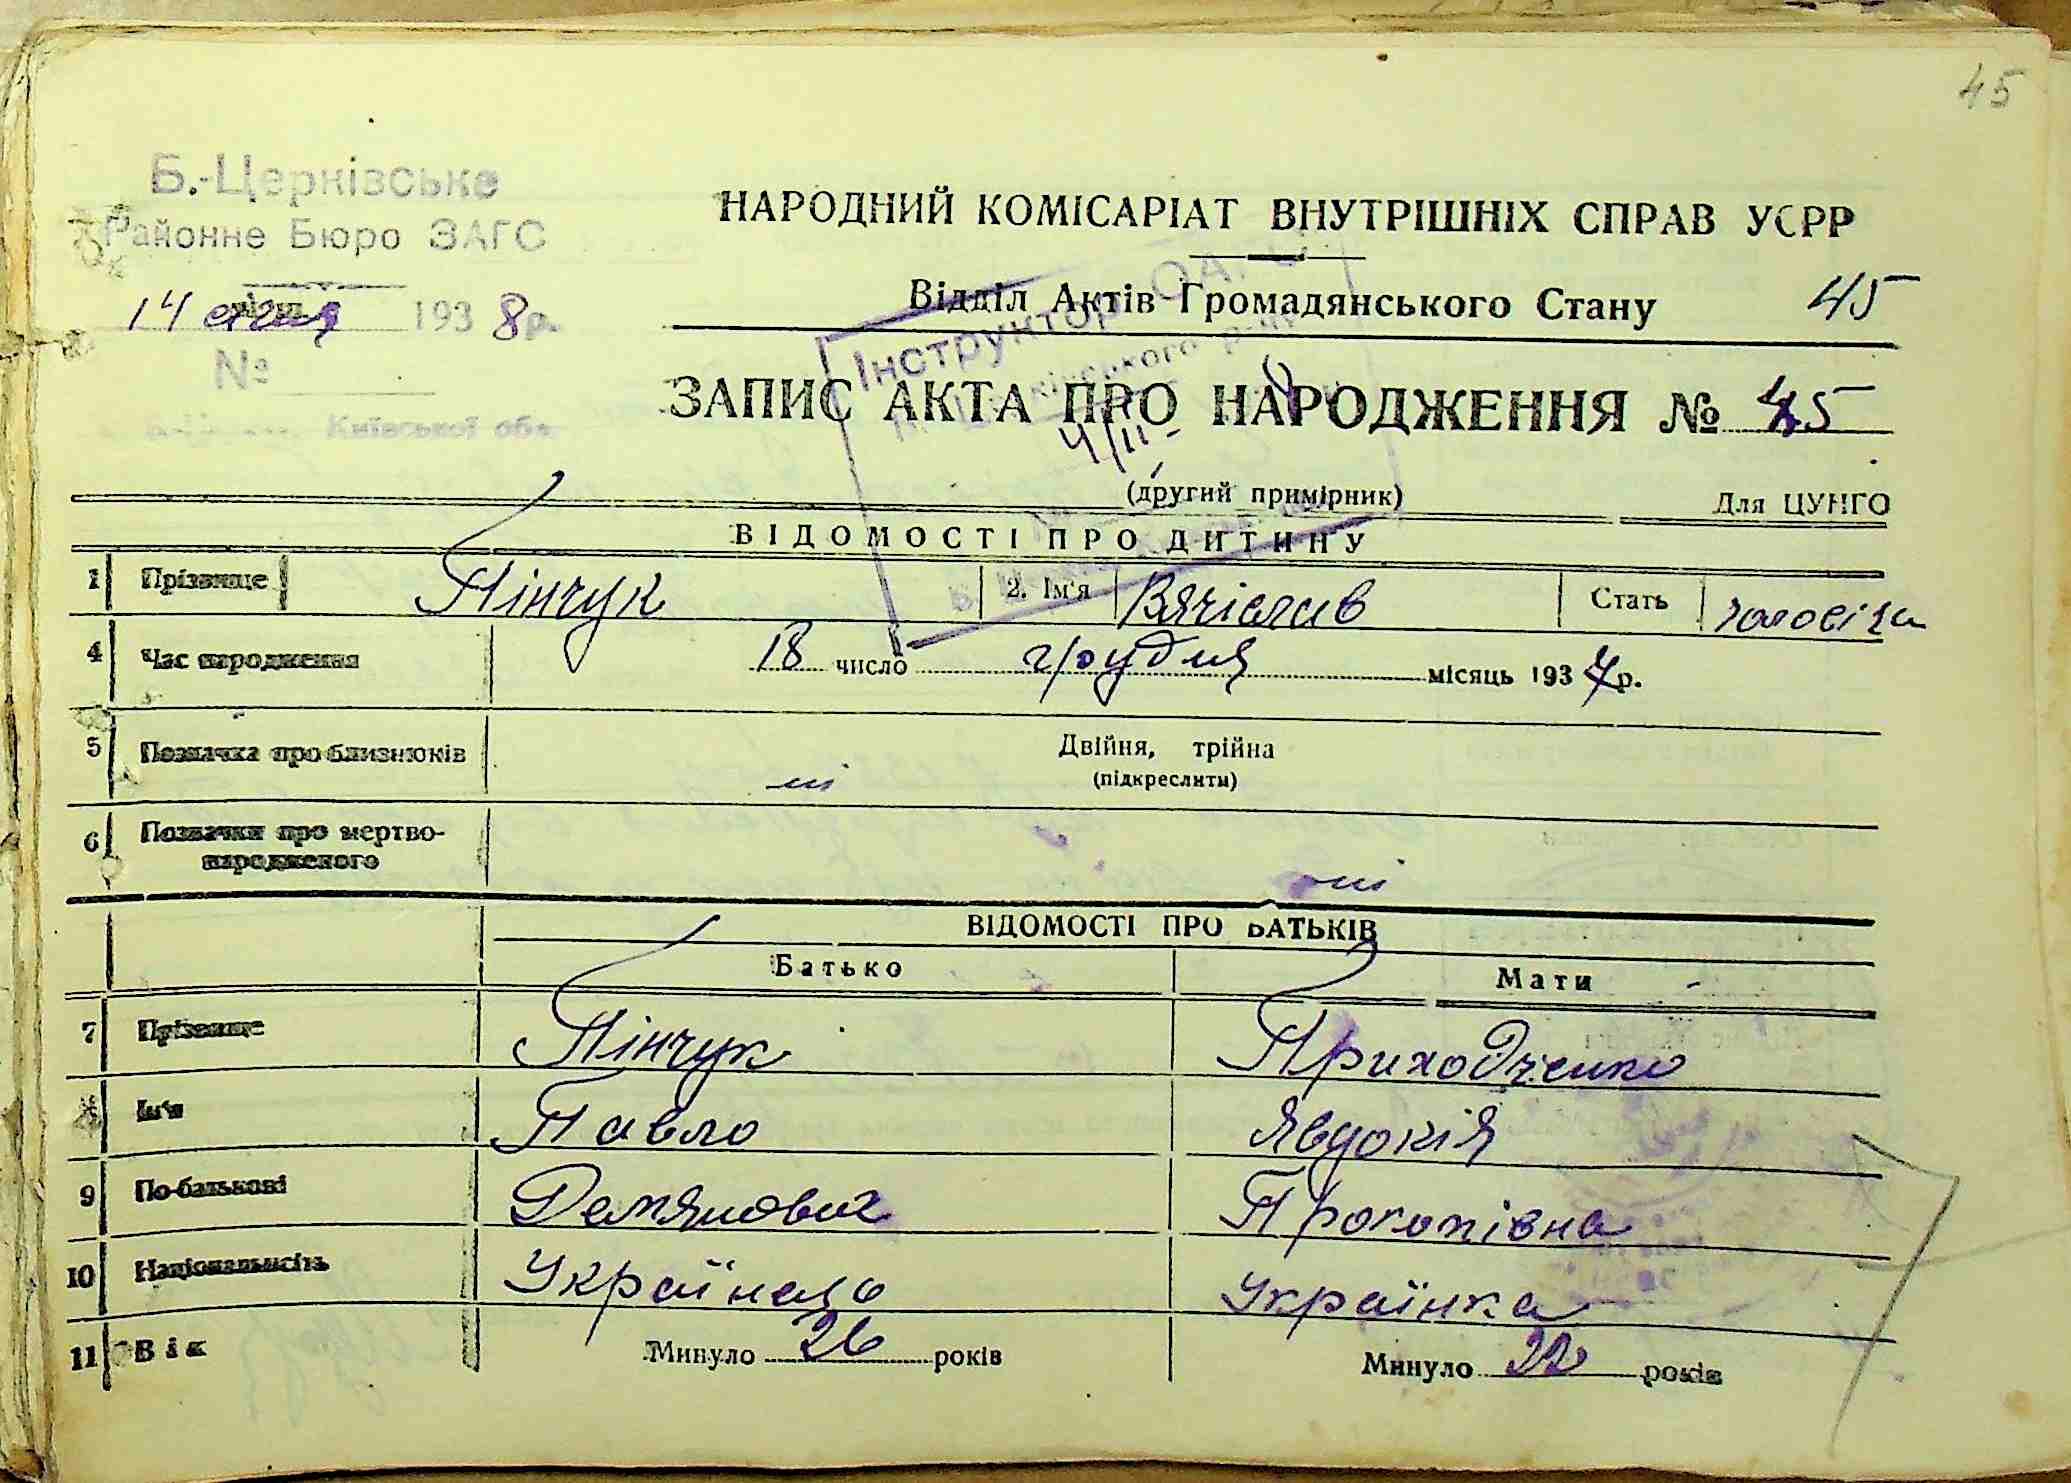 45
Б.-Церківське
Районне Бюро ЗАГС
14 січня 1938р.
№
Київської обл.
НАРОДНИЙ КОМІСАРІАТ ВНУТРІШНІХ СПРАВ УСРР
Відділ Актів Громадянського Стану 45
Інструктор ОАГС
ЗАПИС АКТА ПРО НАРОДЖЕННЯ № 45
4/II-
(другий примірник) Для ЦУНГО
ВІДОМОСТІ ПРО ДИТИНУ
1 Прізвище Пінчук 2. Ім'я Вячіслав Стать чоловіча
4 Час народження 18 число грудня місяць 1937р.
5 Позначка про близнюків Двійня, трійна
ні (підкреслити)
6 Позначки про мертво-
народженого ні
ВІДОМОСТІ ПРО БАТЬКІВ
Батько Мати
7 Прізвище Пінчук Приходченко
8 Ім'я Павло Явдокія
9 По-батькові Демянович Прокопівна
10 Національність Українець Українка
11 Вік Минуло 26 років Минуло 22 років